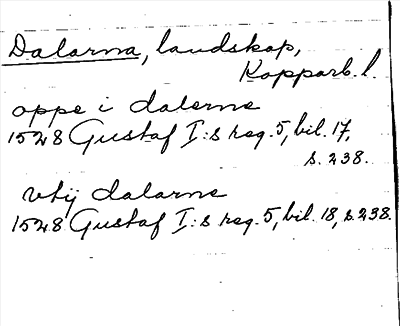 Dalarna, landskap,
Kopparb. l.
oppe i dalerne
1528 Gustaf I:s reg. 5, bil. 17,
s. 238.
vtij dalarne
1528 Gustaf I:s reg. 5, bil. 18, s. 238.